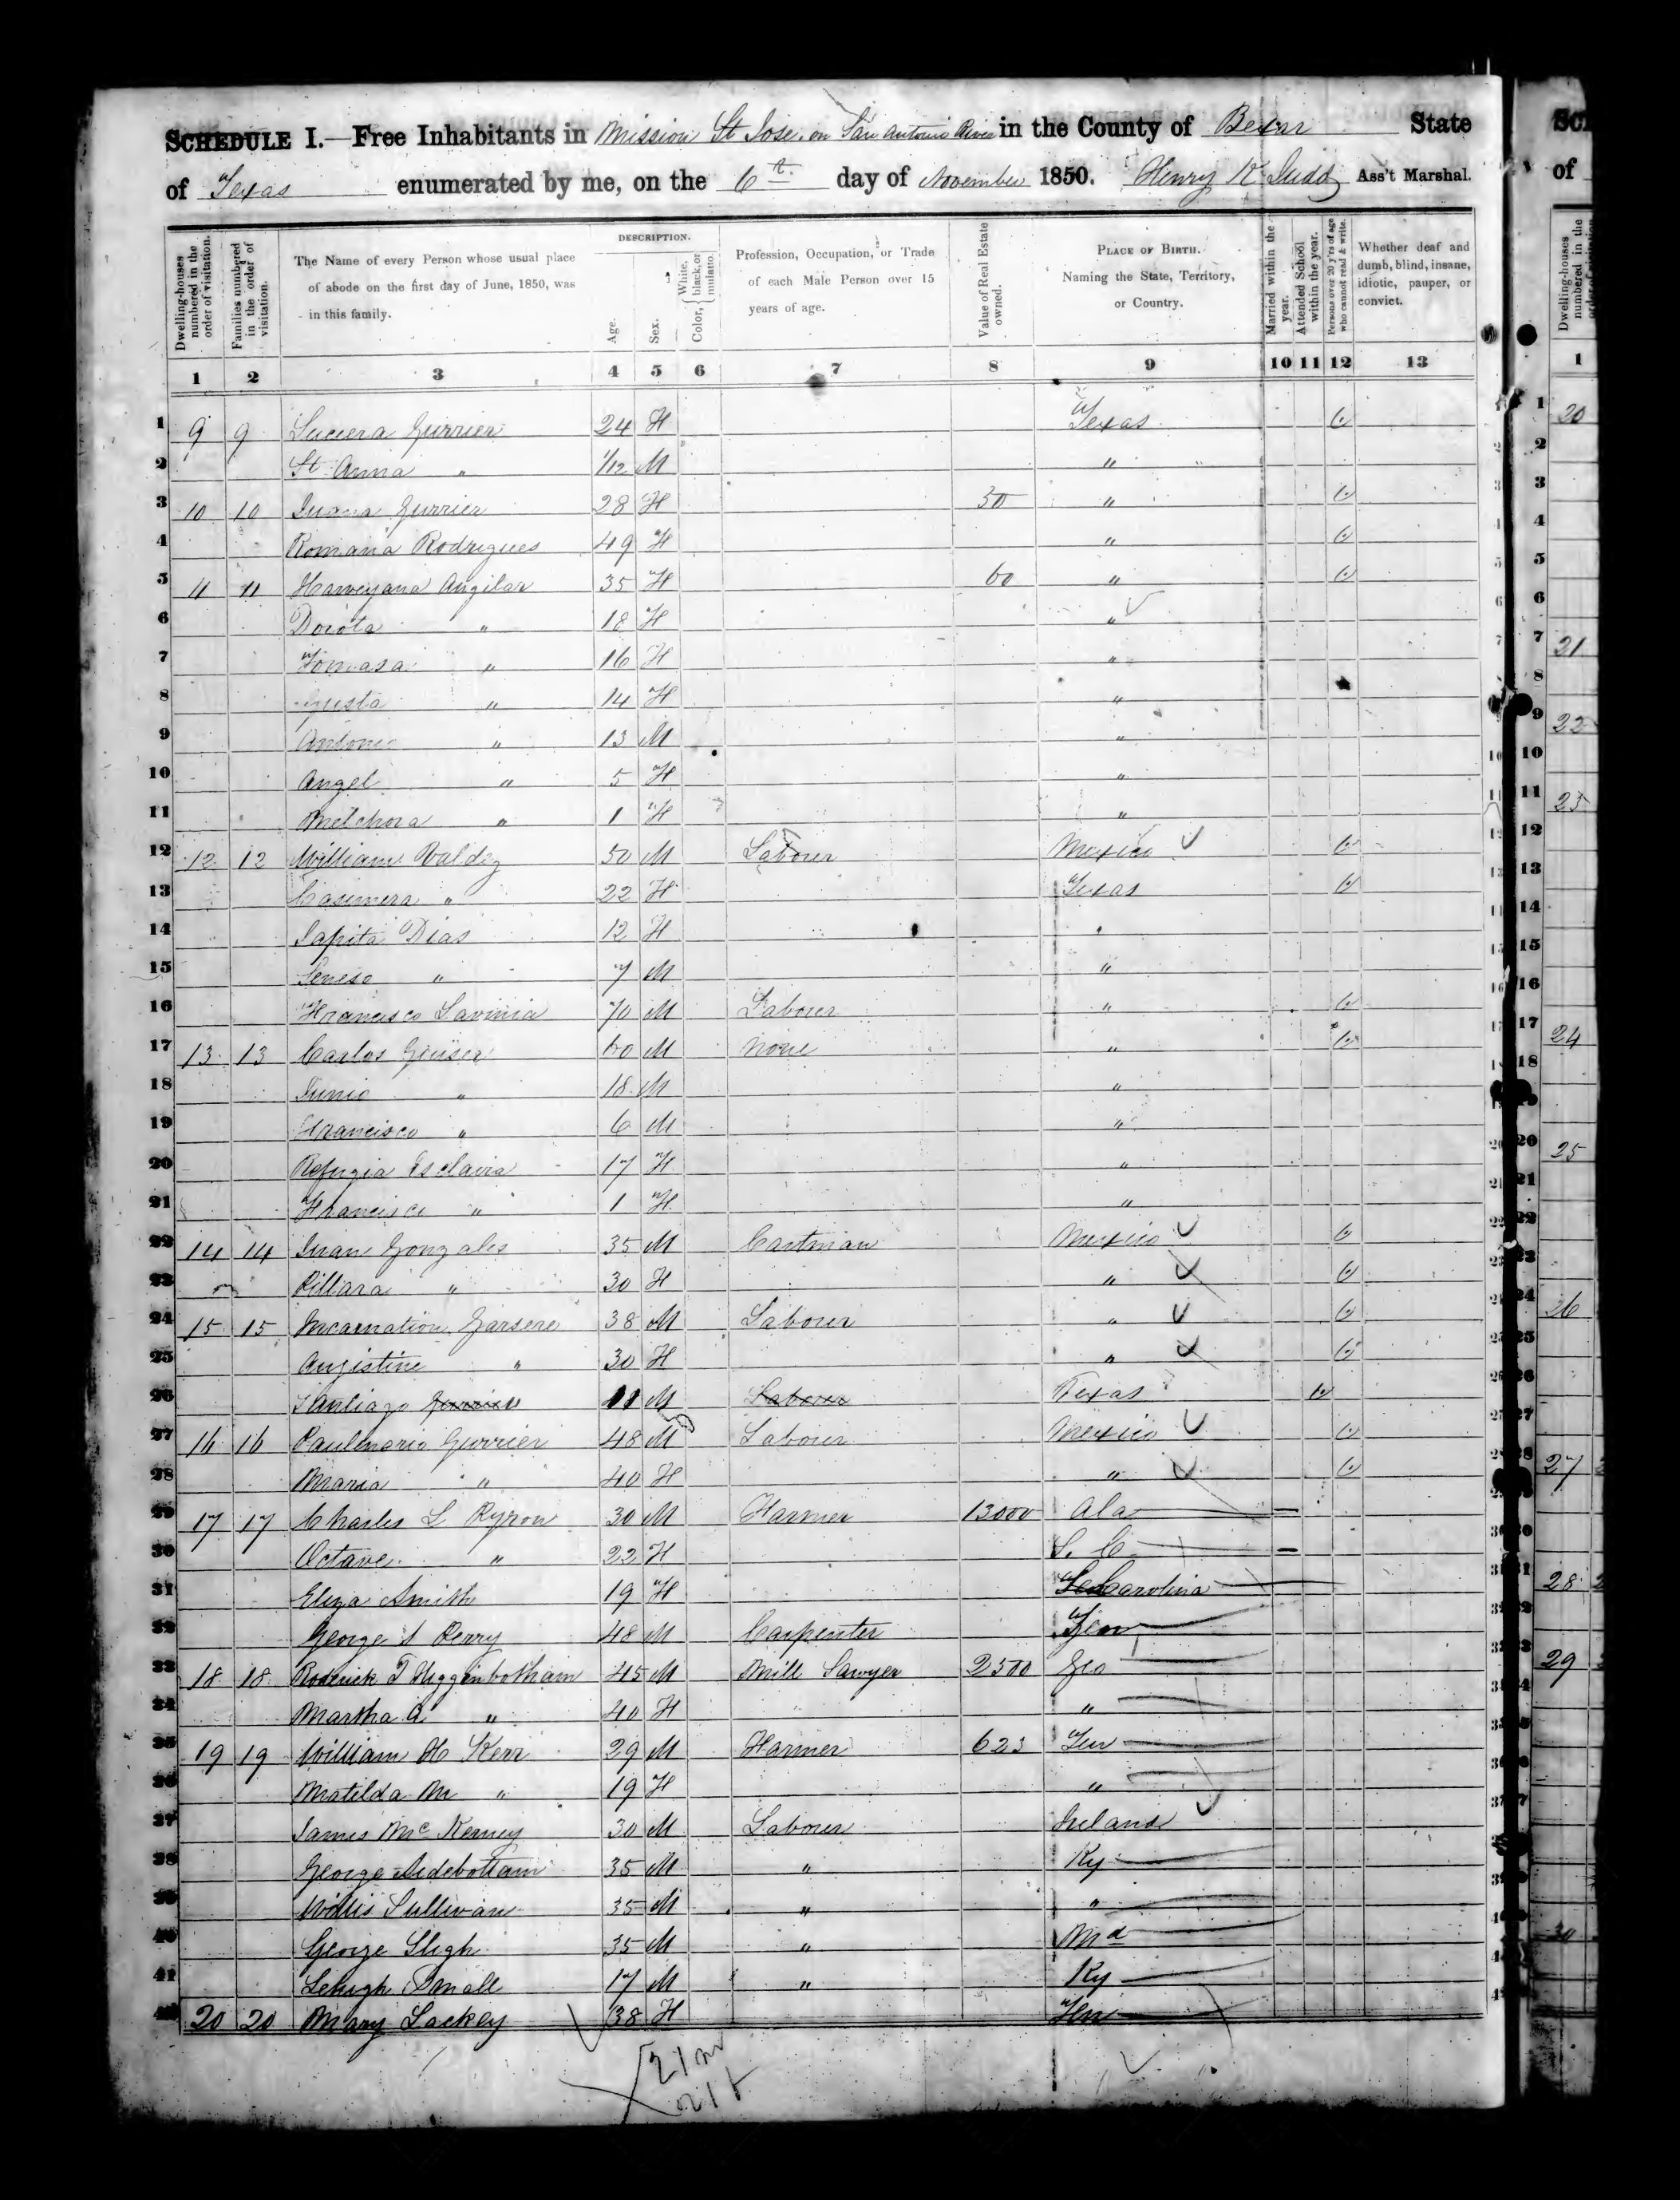 SCHEDULE I.—Free Inhabitants in Mission St Jose on San Antonio River in the County of Bexar State
of Texas enumerated by me, on the 6th day of November 1850. Henry K Judd Ass't Marshal.
Dwelling-houses numbered in the order of visitation.
Families numbered in the order of visitation.
The Name of every Person whose usual place of abode on the first day of June, 1850, was in this family.
DESCRIPTION.
Age.
Sex.
Color, { White, black, or mulatto.
Profession, Occupation, or Trade of each Male Person over 15 years of age.
Value of Real Estate owned.
PLACE OF BIRTH. Naming the State, Territory, or Country.
Married within the year.
Attended School within the year.
Persons over 20 y'rs of age who cannot read & write.
Whether deaf and dumb, blind, insane, idiotic, pauper, or convict.
1 2 3 4 5 6 7 8 9 10 11 12 13
1 9 9 Gurrier 24 F Texas
2 St Anna " 1/12 M "
3 10 10 Juana Gurrier 28 F 50 "
4 Romana Rodrigues 49 F "
5 11 11 Angilar 35 F 60 "
6 Dorota " 18 F "
7 Tomasa " 16 F "
8 Gusta " 14 F "
9 Antonio " 13 M "
10 Angel " 5 F "
11 Melchora " 1 F "
12 12 12 William Valdez 50 M Labourer Mexico
13 Casimera " 22 F Texas
14 Japita Dias 12 F "
15 " 7 M "
16 Francisco Savinia 70 M Labourer "
17 13 13 Carlos 60 M None "
18 Junio " 18 M "
19 Francisco " 6 M "
20 Refugia Esclavia 17 F "
21 Francisco " 1 F "
22 14 14 Juan Gonzales 35 M Cartman Mexico
23 Pillara " 30 F "
24 15 15 Incarnation Garsere 38 M Labourer "
25 Angistine " 30 F "
26 Santiago Gurrier 11 M Labourer Texas
27 16 16 Paulenario Gurrier 48 M Labourer Mexico
28 Maria " 40 F "
29 17 17 Charles L Pyron 30 M Farmer 13000 Ala
30 Octave " 22 F S. C
31 Eliza Smith 19 F Carolina
32 George S Perry 48 M Carpenter Ten
33 18 18 Roderick T Higginbotham 45 M Mill Sawyer 2500 Geo
34 Martha A " 40 F "
35 19 19 William H Kerr 29 M Farmer 623 Ten
36 Matilda M " 19 F "
37 James Mc Kerney 30 M Labourer Ireland
38 George Sidebottam 35 M " Ky
39 Willis Sullivan 35 M " "
40 George Sligh 35 M " Md
41 Lehigh Small 17 M " Ky
42 20 20 Mary Lackey 38 F Ten
21 m
21 f